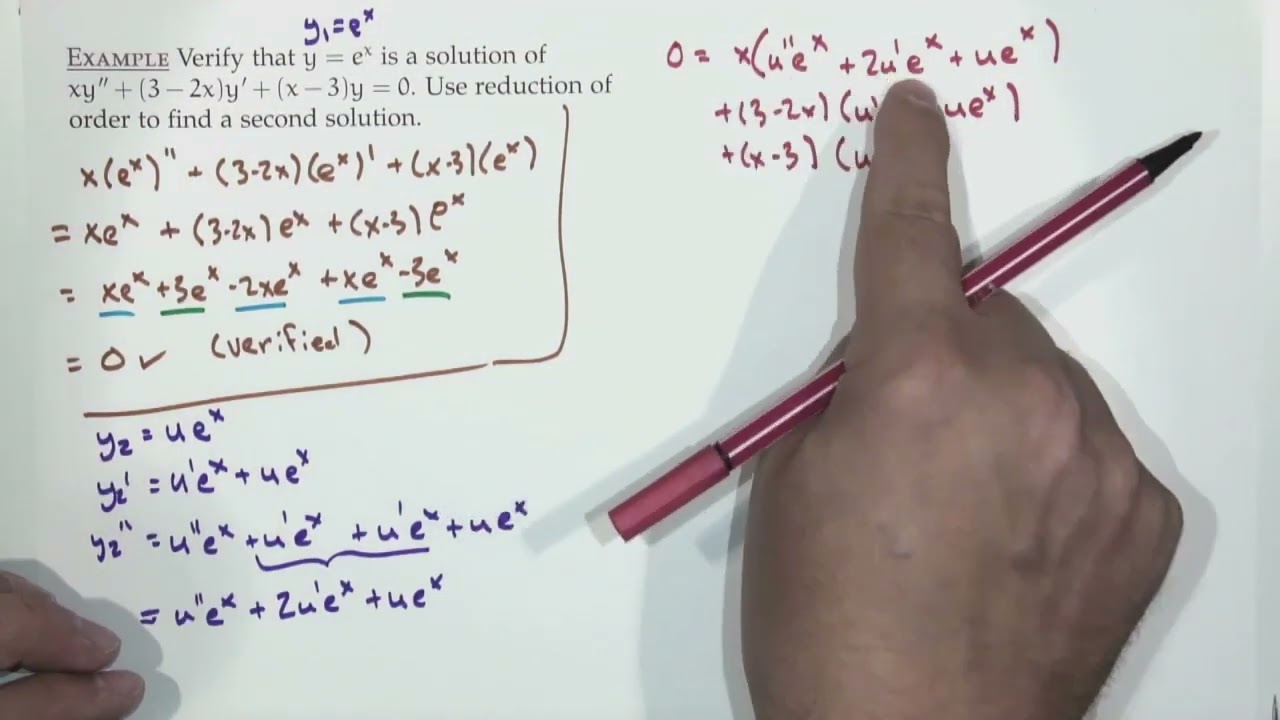 y₁=eˣ
EXAMPLE Verify that y = eˣ is a solution of
xy″ + (3 − 2x)y′ + (x − 3)y = 0. Use reduction of
order to find a second solution.
x(eˣ)″ + (3-2x)(eˣ)′ + (x-3)(eˣ)
= xeˣ + (3-2x)eˣ + (x-3)eˣ
= xeˣ +3eˣ -2xeˣ +xeˣ -3eˣ
= 0 ✓ (verified)
y₂ = ueˣ
y₂′ = u′eˣ + ueˣ
y₂″ = u″eˣ + u′eˣ + u′eˣ + ueˣ
= u″eˣ + 2u′eˣ + ueˣ
0 = x(u″eˣ + 2u′eˣ + ueˣ)
+(3-2x)(u′ ueˣ)
+(x-3)(u